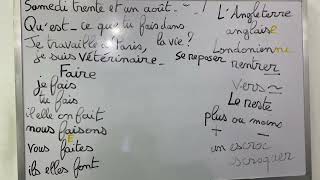 Samedi trente et un août
Qu'est-ce que tu fais dans
la vie?
Je travaille à Paris,
je suis Vétérinaire.
Faire
je fais
tu fais
il elle on fait
nous faisons
E
vous faites
ils elles font
L'Angleterre
anglaise
Londonienne
se reposer
rentrer
Vers ~
Le reste
plus ou moins
+ -
un escroc
escroquer